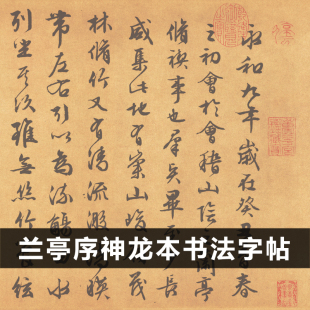 永和九年歲在癸丑暮春
之初會于會稽山陰之蘭亭
脩稧事也羣賢畢至少長
咸集此地有崇山峻領茂
林脩竹又有清流激湍映
帶左右引以為流觴曲水
列坐其次雖無絲竹管弦
兰亭序神龙本书法字帖